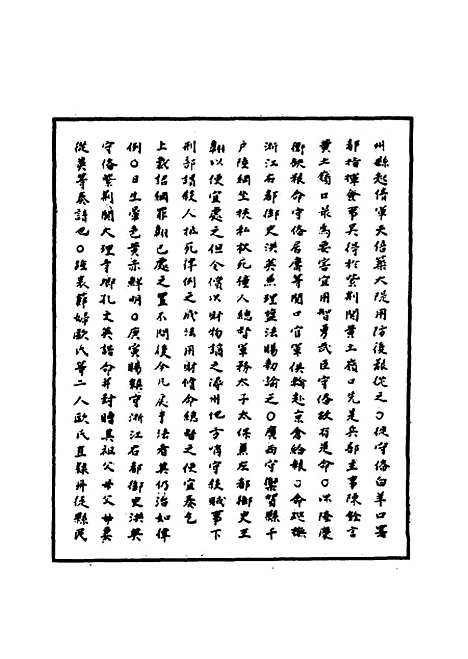 州縣起倩軍夫俻藥大陡用防後艱從之○從守俻白羊口署
都指揮僉事吳得於紫荆關黃土嶺口先是兵部主事陳銓言
黃土嶺口最為要害宜用智勇武臣守俻故有是命○以隆慶
衛缺粮命守俻居庸等關口官軍俱輪赴京倉給粮○命廵撫
浙江右都御史洪英兼理鹽法賜勑諭之○廣西守禦賀縣千
户陸綱坐挾私杖死僮人總督軍務太子太保兼左都御史王
翺以便宜處之但令償以財物謫之潯州他方哨守後賊事下
刑部謂殺人抵死律例之成法用財償命總督之便宜奏乞
上裁詔綱罪翺已處之置不問後今凡處事法者其仍治如律
例○日生暈色黃赤鮮明○庚寅賜鎮守浙江右都御史洪英
守俻紫荆關大理寺卿孔文英誥命并封贈其祖父母父母妻
從英等奏請也○旌表節婦歐氏等二人歐氏直隸丹徒縣民